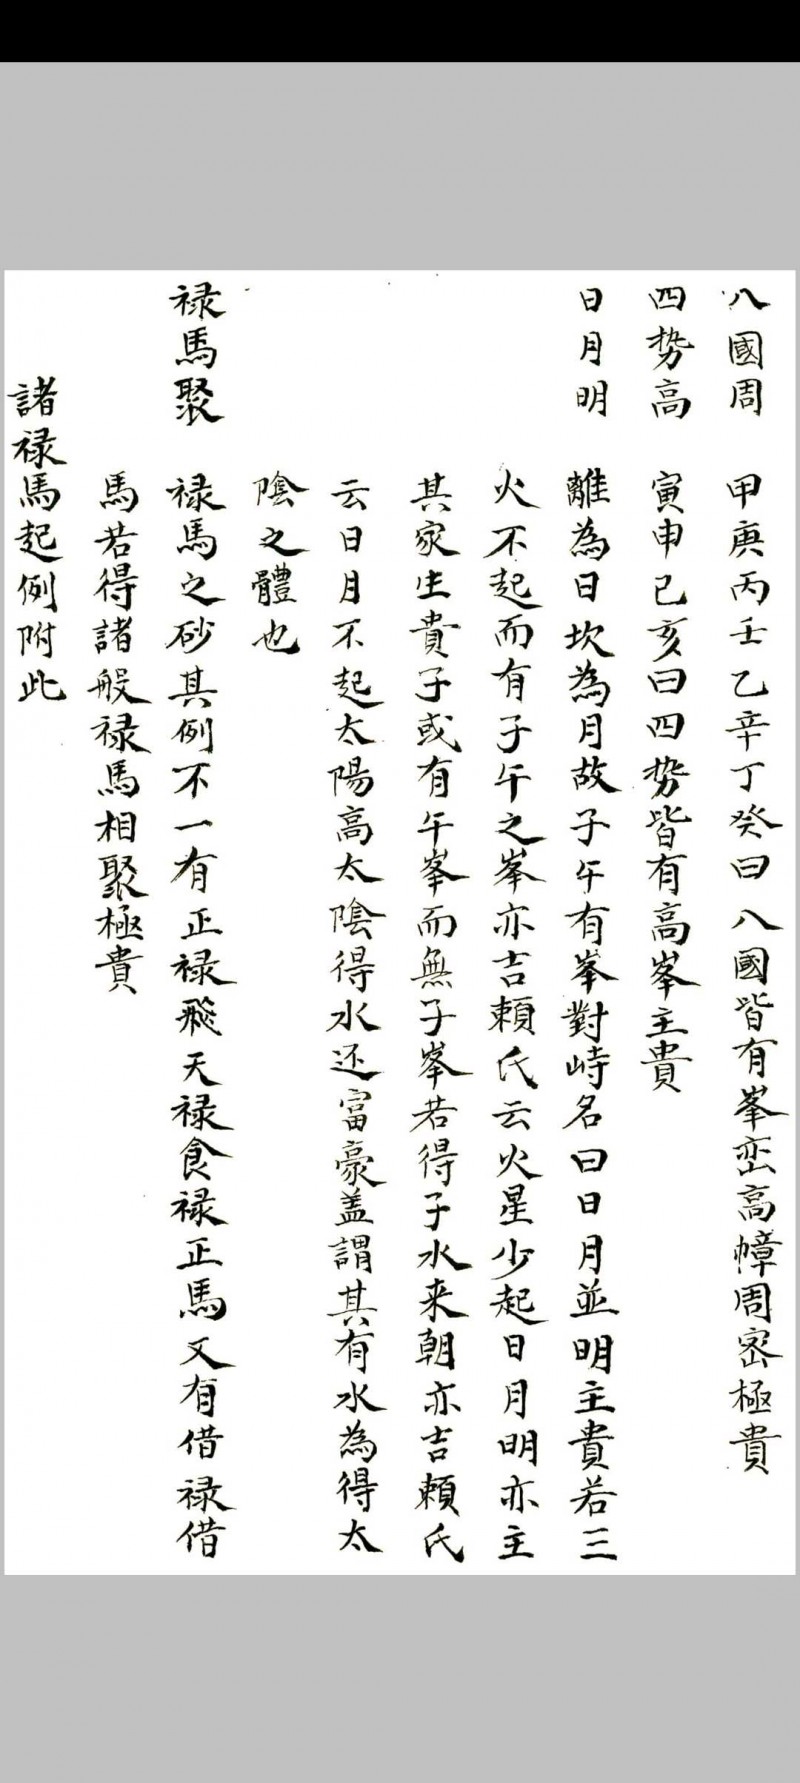 八國周 甲庚丙壬乙辛丁癸曰八國皆有峯巒高幛周密極貴
四势高 寅申巳亥曰四势皆有高峯主貴
日月明 離為日坎為月故子午有峯對峙名曰日月並明主貴若三
火不起而有子午之峯亦吉賴氏云火星少起日月明亦主
其家生貴子或有午峯而無子峯若得子水来朝亦吉賴氏
云日月不起太陽高太陰得水还富豪盖謂其有水為得太
陰之體也
禄馬聚 禄馬之砂其例不一有正禄飛天禄食禄正馬又有借禄借
馬若得諸般禄馬相聚極貴
諸禄馬起例附此